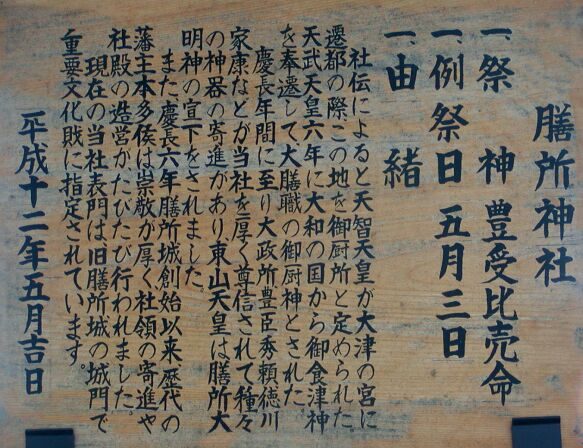 膳所神社
一、祭神 豊受比売命
一、例祭日 五月三日
一、由緒
社伝によると天智天皇が大津の宮に
遷都の際この地を御厨所と定められた
天武天皇六年に大和の国から御食津神
を奉遷して、大膳職の御厨神とされた。
慶長年間に至り大政所豊臣秀頼徳川
家康などが当社を厚く尊信されて種々
の神器の寄進があり、東山天皇は膳所大
明神の宣下をされました。
また慶長六年膳所城創始以来歴代の
藩主本多候は崇敬が厚く社領の寄進や
社殿の造営がたびたび行われました。
現在の当社表門は、旧膳所城の城門で
重要文化財に指定されています。
平成十二年五月吉日